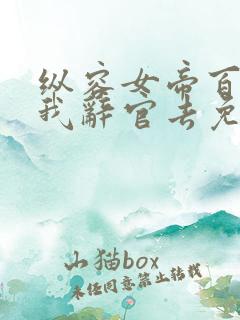 纵容女帝百
我辞官去免
山猫box
未经同意禁止转载